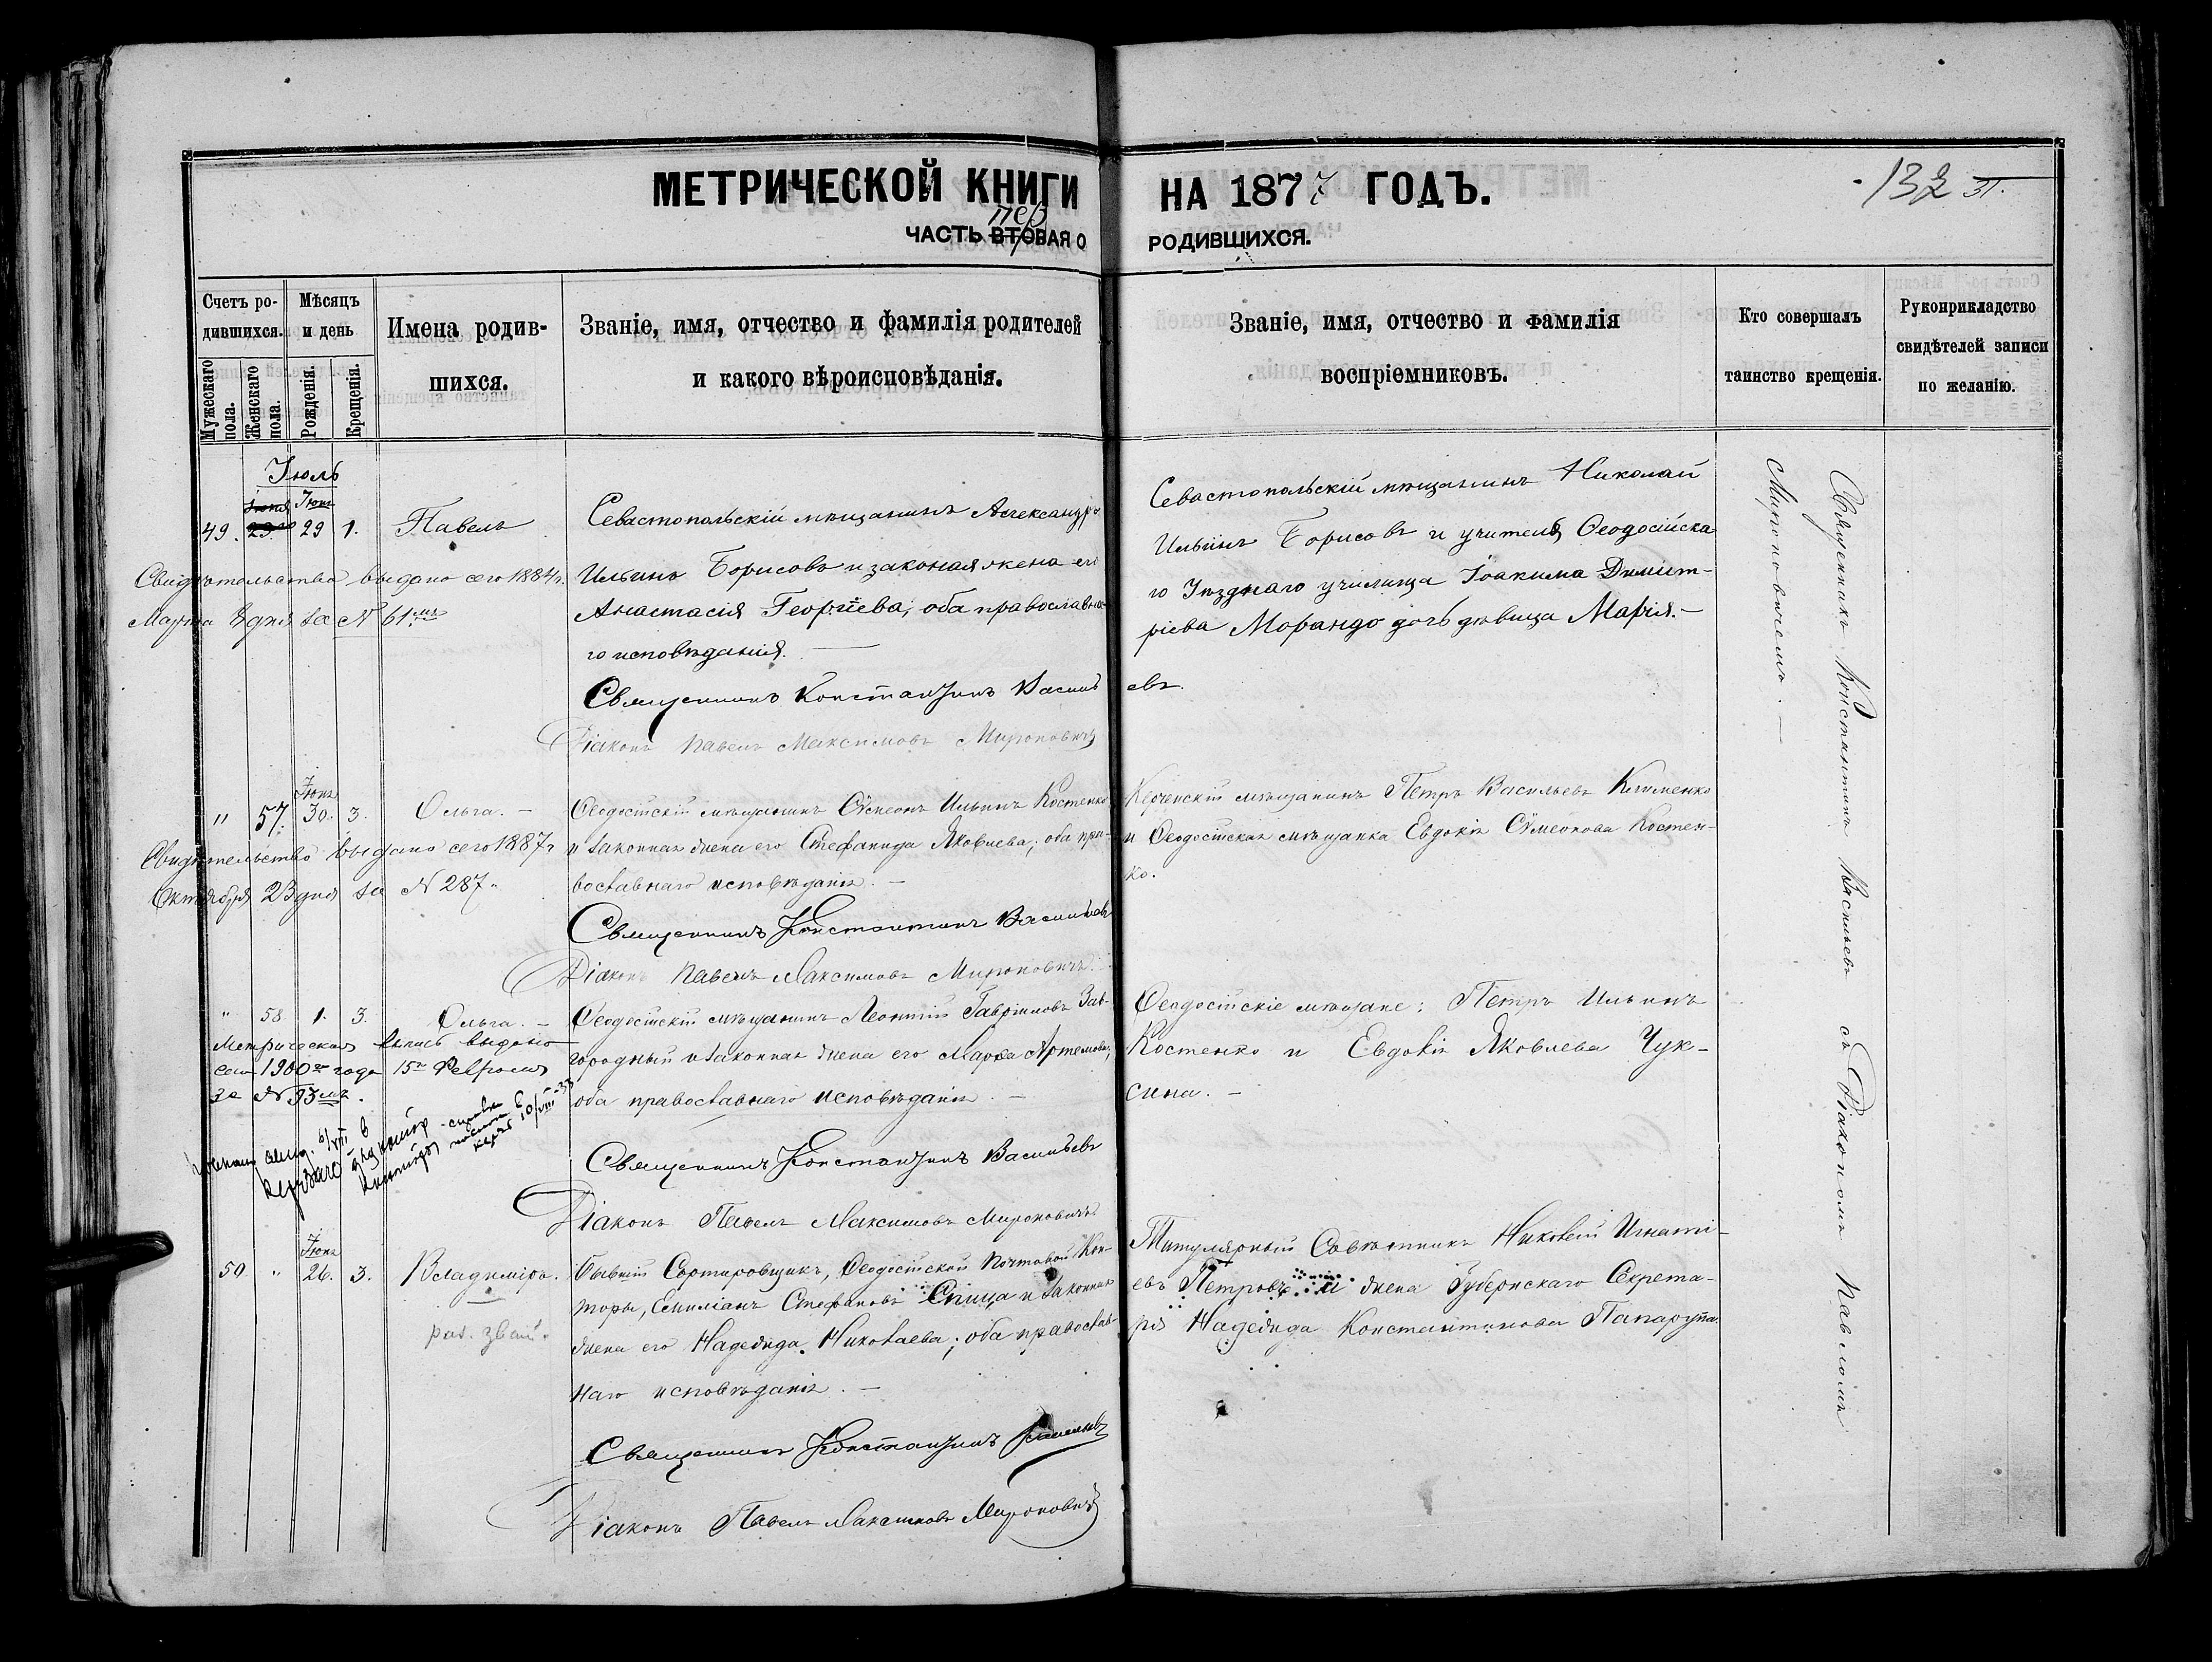 МЕТРИЧЕСКОЙ КНИГИ НА 1877 ГОДЪ.
132 31.
пер
ЧАСТЬ ВТОРАЯ О РОДИВШИХСЯ.
Счетъ ро-
дившихся.
Мужескаго пола.
Женскаго пола.
Мѣсяцъ
и день
Рожденія.
Крещенія.
Имена родив-
шихся.
Званіе, имя, отчество и фамилія родителей
и какого вѣроисповѣданія.
Званіе, имя, отчество и фамилія
воспріемниковъ.
Кто совершалъ
таинство крещенія.
Рукоприкладство
свидѣтелей записи
по желанію.
Іюль
Іюня Іюня
49. 29 29 1. Павелъ
Свидѣтельство выдано сего 1884 г.
Марта 8 дня за № 61мъ
Севастопольскій мѣщанинъ Александръ
Ильинъ Борисовъ и законая жена его
Анастасія Георгіева; оба православна-
го исповѣданія.
Священникъ Константинъ Василь евъ.
Діаконъ Павелъ Максимовъ Мироновичъ
Севастопольскій мѣщанинъ Николай
Ильинъ Борисовъ и учителя Ѳеодосійска-
го Уѣзднаго училища Іоакима Димит-
ріева Морандо дочь дѣвица Марія.-
Священникъ Константинъ Васильевъ съ Діакономъ Павломъ
Мироновичемъ.-
Іюня
" 57. 30. 3. Ольга. -
Свидѣтельство выдано сего 1887 г.
Октября 23 дня за № 287.
Ѳеодосійскій мѣщанинъ Сѵмеонъ Ильинъ Костенко
и законная жена его Стефанида Яковлева; оба пра-
вославнаго исповѣданія. -
Священникъ Константинъ Васильевъ
Діаконъ Павелъ Максимовъ Мироновичъ.
Керченскій мѣщанинъ Петръ Васильевъ Клименко
и Ѳеодосійская мѣщанка Евдокія Сѵмеонова Костен-
ко.
" 58 1. 3. Ольга. -
Метрическая выпись выдано
сего 1900го года 15го Февраля
за № 93мъ.
Ѳеодосійскій мѣщанинъ Леонтій Гавріиловъ Зав-
городный и законная жена его Марѳа Артемова;
оба православнаго исповѣданія. -
Священникъ Константинъ Васильевъ
Діаконъ Павелъ Максимовъ Мироновичъ.
Ѳеодосійскіе мѣщане: Петръ Ильинъ
Костенко и Евдокія Яковлева Чук-
сина. -
Іюня
50 " 26. 3. Владиміръ.
Бывшій Сортировщикъ, Ѳеодосійской Почтовой Кон-
торы, Емиліанъ Стефановъ Спица и законная
жена его Надежда Николаева; оба православ-
наго исповѣданія. -
Священникъ Константинъ Васильевъ
Діаконъ Павелъ Максимовъ Мироновичъ
Титулярный Совѣтникъ Николай Игнаті-
евъ Петровъ и жена Губернскаго Секрета-
ря Надежда Константинова Папарупа.